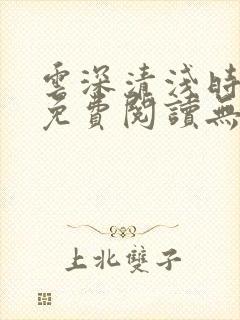 雲深清淺時
免費閱讀無
上北雙子